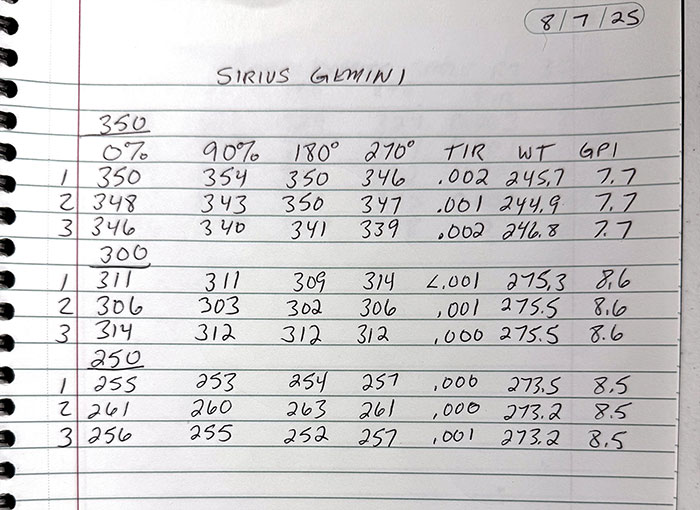 8/7/25
SIRIUS GEMINI
350
0% 90% 180° 270° TIR WT GPI
1 350 354 350 346 .002 245.7 7.7
2 348 343 350 347 .001 244.9 7.7
3 346 340 341 339 .002 246.8 7.7
300
1 311 311 309 314 <.001 275.3 8.6
2 306 303 302 306 .001 275.5 8.6
3 314 312 312 312 .000 275.5 8.6
250
1 255 253 254 257 .000 273.5 8.5
2 261 260 263 261 .000 273.2 8.5
3 256 255 252 257 .001 273.2 8.5